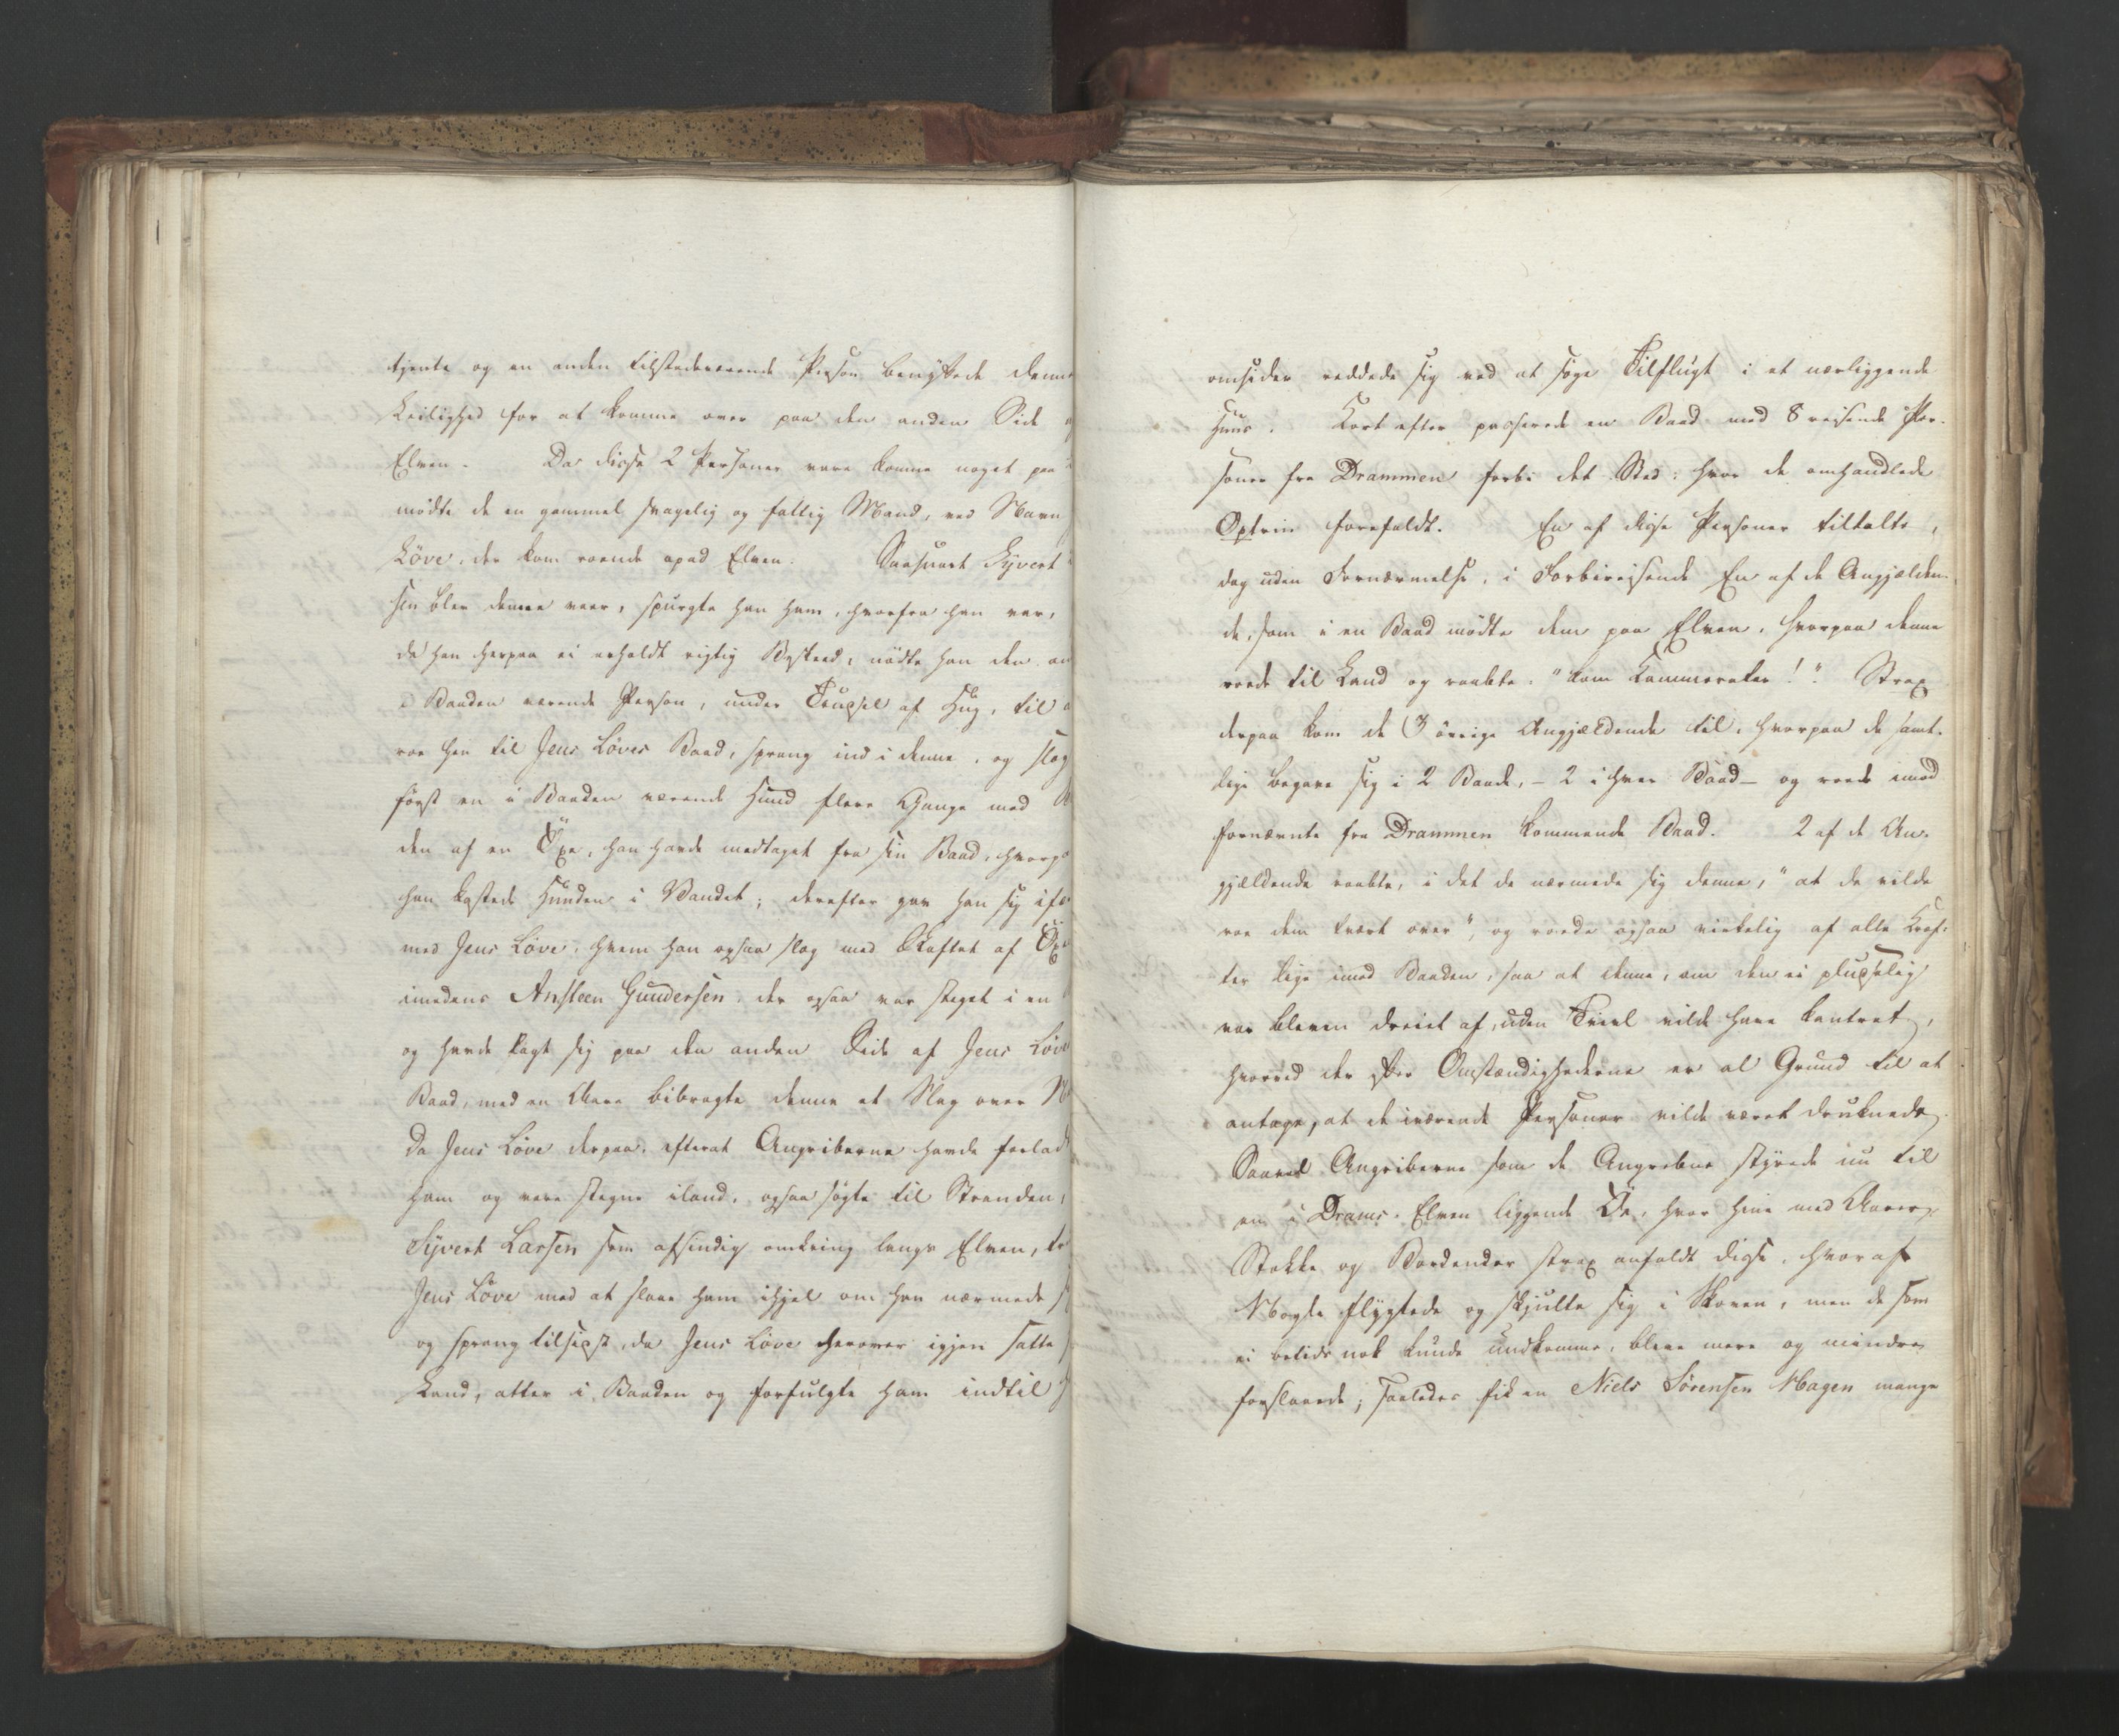 tjente og en anden tilstedeværende Person benyttede denne
Leilighed for at komme over paa den anden Side
Elven. Da disse 2 Personer vare komne noget paa
mødte de en gammel svagelig og fattig Mand, ved Navn
Løve, der kom roende opad Elven. Saasnart Syvert
sen blev denne vaer, spurgte han ham, hvorfra han var,
da han herpaa ei erholdt rigtig Beskeed, nødte han den
i Baaden værende Person, under Trudsel af Hug, til
roe hen til Jens Løves Baad, sprang ind i denne, og slog
først en i Baaden værende Hund flere Gange med
den af en Öxe, han havde medtaget fra sin Baad, hvorpaa
han kastede Hunden i Vandet; derefter gav han sig ifær
med Jens Løve, hvem han ogsaa slog med Skaftet af Öxe
imedens Ansteen Gundersen, der ogsaa var steget i en
og havde lagt sig paa den anden Side af Jens Løves
Baad, med en Aare bibragte denne et Slag over
Da Jens Løve derpaa, efterat Angriberne havde forladt
ham og vare stegne iland, ogsaa søgte til Stranden,
Syvert Larsen som afsindig omkring langs Elven,
Jens Løve med at slaae ham ihjel om han nærmede
og sprang tilsidst, da Jens Løve herover igjen satte
Land, atter i Baaden og forfulgte ham indtil
omsider reddede sig ved at søge Tilflugt i et nærliggende
Huus. Kort efter passerede en Baad med 8 reisende Per-
soner fra Drammen forbi det Sted: hvor de omhandlede
Optrin forefaldt. En af disse Personer tiltalte,
dog uden Fornærmelse, i Forbireisende En af de Angjælden-
de, som i en Baad mødte dem paa Elven, hvorpaa denne
roede til Land og raabte: "kom Kammerater!". Strax
derpaa kom de 3 øvrige Angjældende til, hvorpaa de samt-
lige begave sig i 2 Baade, – 2 i hver Baad – og roede imod
fornævnte fra Drammen kommende Baad. 2 af de An-
gjældende raabte, i det de nærmede sig denne, "at de vilde
roe dem tvært over", og roede ogsaa virkelig af alle Kræf-
ter lige imod Baaden, saa at denne, om den ei pludselig
var bleven dreiet af, uden Tvivl vilde have kantret,
hvorved der efter Omstændighederne er al Grund til at
antage, at de iværende Personer vilde været druknede.
Saavel Angriberne som de Angrebne styrede nu til
en i Drams-Elven liggende Öe, hvor hine med Aarer,
Stokke og Bordender strax anfaldt disse, hvoraf
Nogle flygtede og skjulte sig i Skoven, men de som
ei betids nok kunde undkomme, bleve mere og mindre
forslaaede; saaledes fik en Niels Sørensen Hagen mange